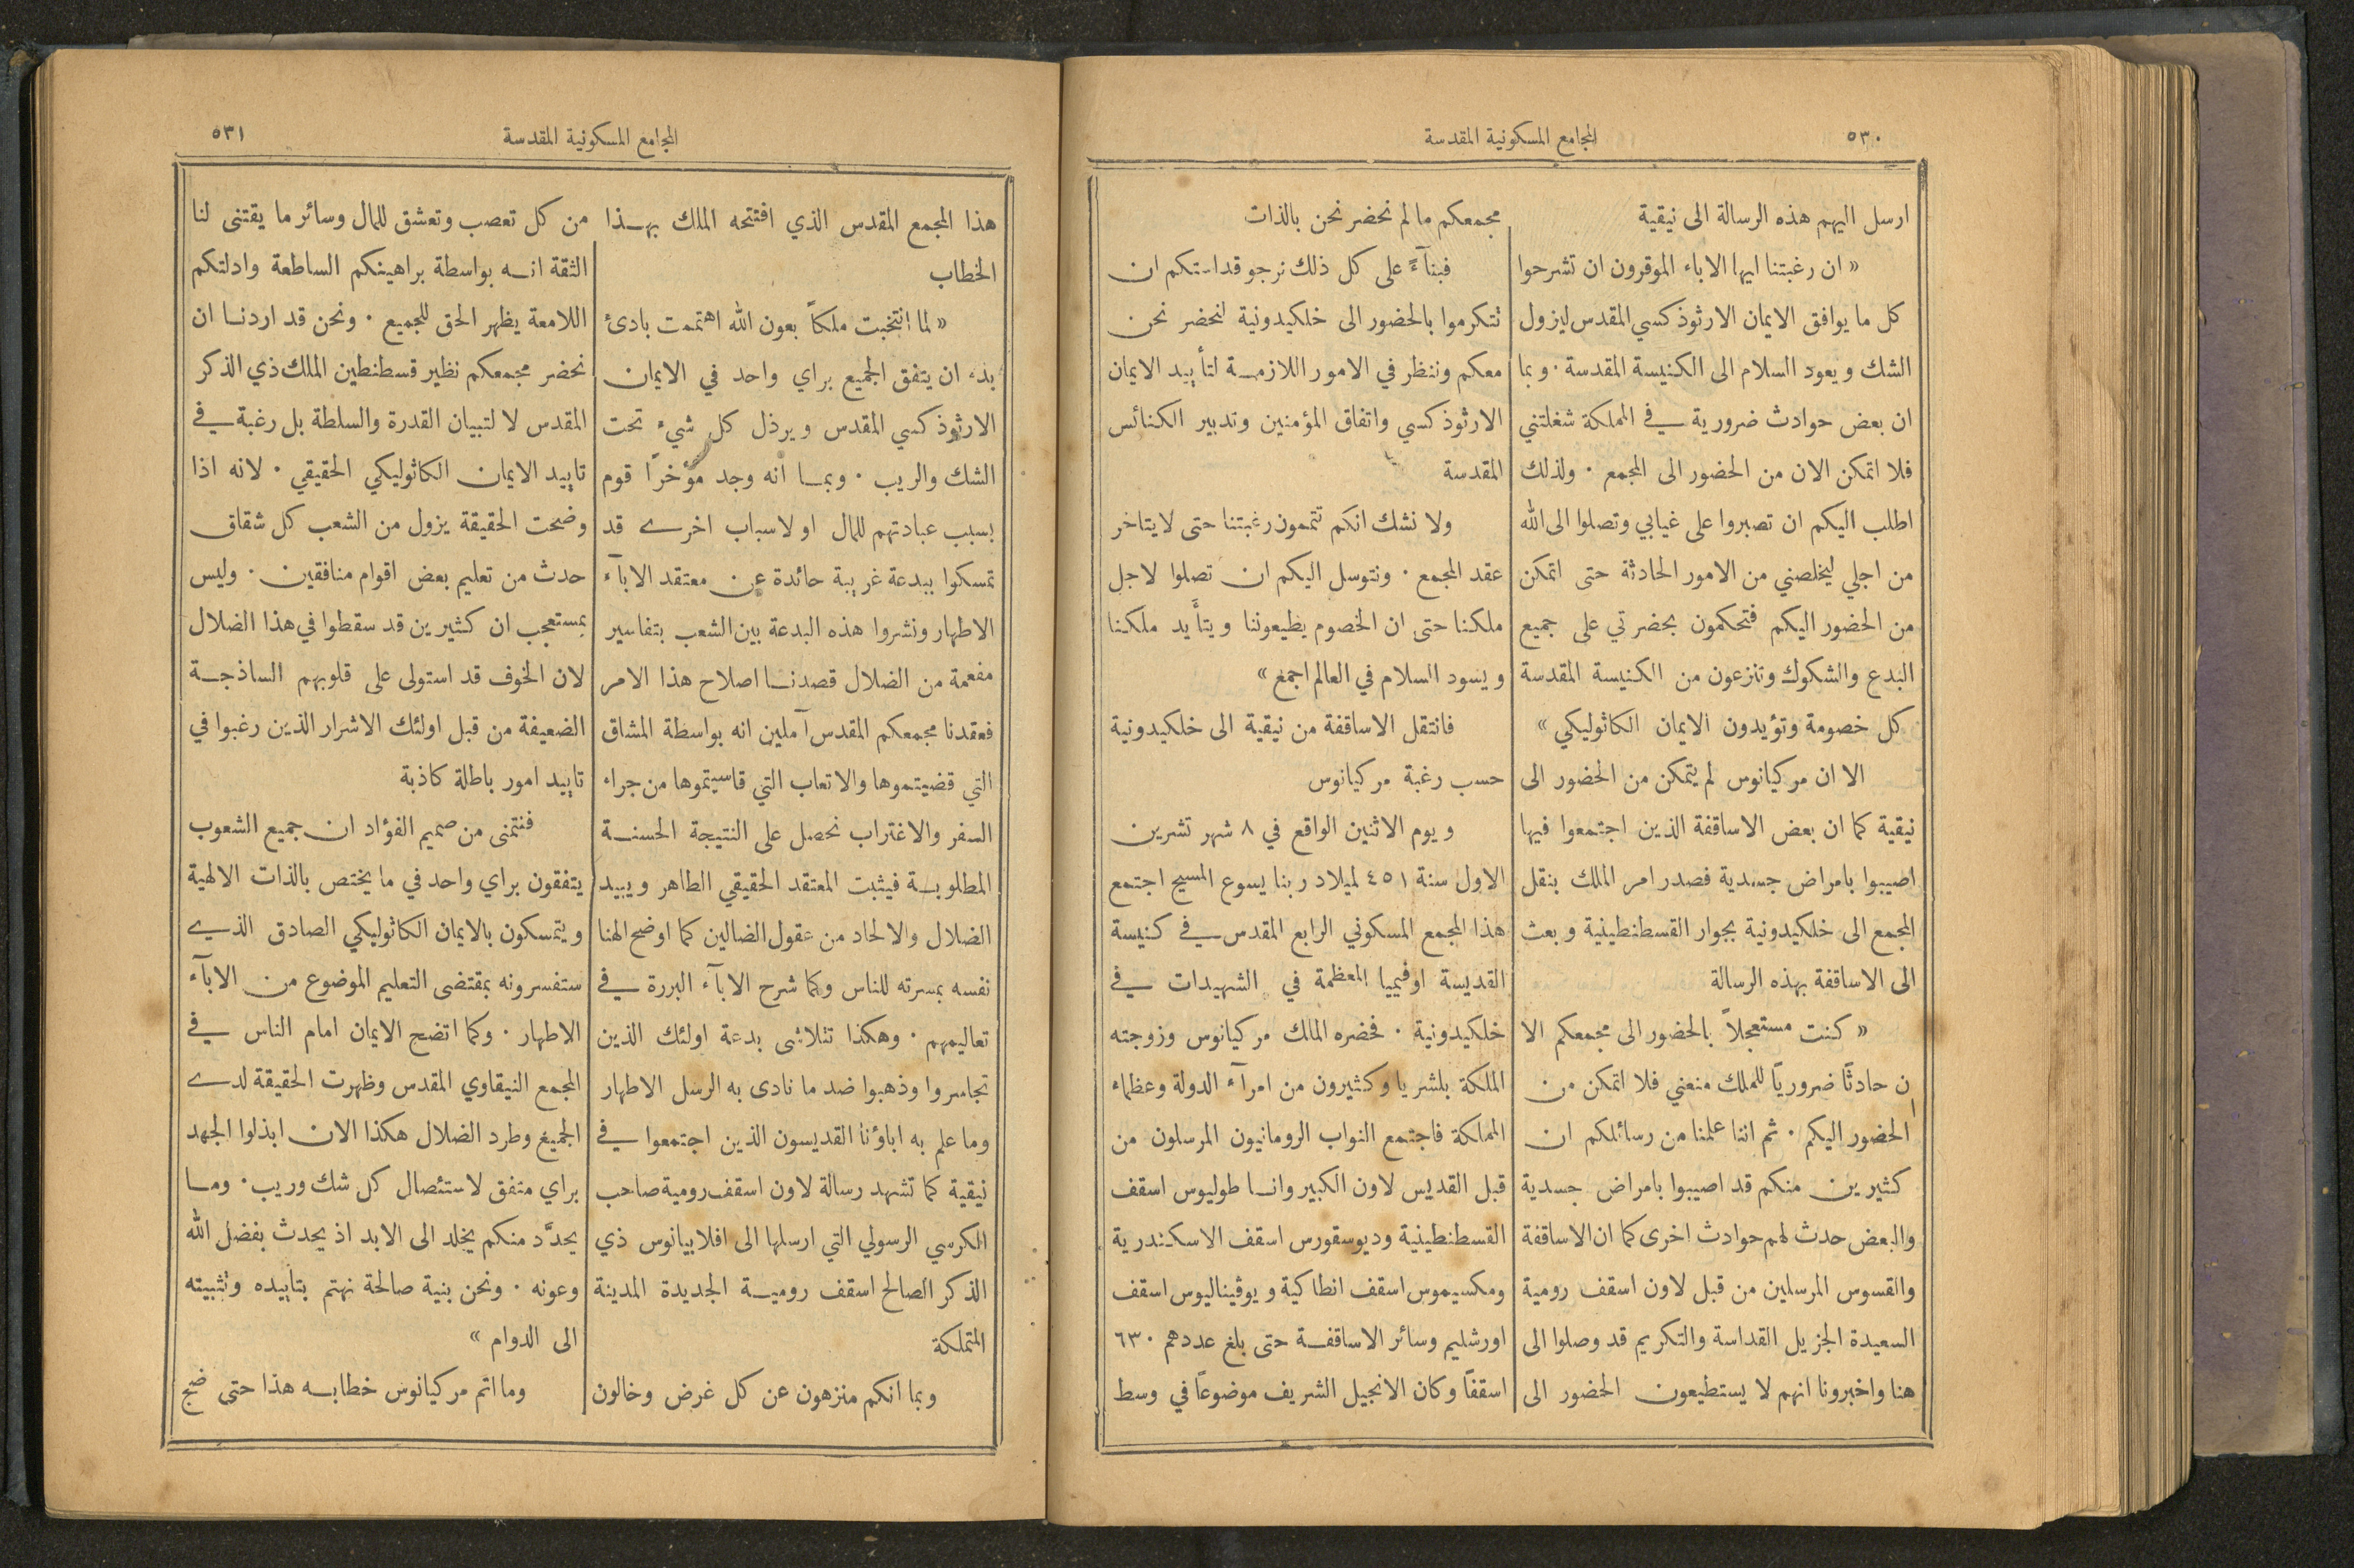 ٥٣٠
المجامع المسكونية المقدسة
ارسل اليهم هذه الرسالة الى نيقية
« ان رغبتنا ايها الاباء الموقرون ان تشرحوا
كل ما يوافق الايمان الارثوذكسي المقدس ليزول
الشك ويعود السلام الى الكنيسة المقدسة · وبما
ان بعض حوادث ضرورية في المملكة شغلتني
فلا اتمكن الان من الحضور الى المجمع · ولذلك
اطلب اليكم ان تصبروا على غيابي وتصلوا الى الله
من اجلي ليخلصني من الامور الحادثة حتى اتمكن
من الحضور اليكم فتحكمون بحضرتي على جميع
البدع والشكوك وتنزعون من الكنيسة المقدسة
كل خصومة وتؤيدون الايمان الكاثوليكي »
الا ان مركيانوس لم يتمكن من الحضور الى
نيقية كما ان بعض الاساقفة الذين اجتمعوا فيها
اصيبوا بامراض جسدية فصدر امر الملك بنقل
المجمع الى خلكيدونية بجوار القسطنطينية وبعث
الى الاساقفة بهذه الرسالة
« كنت مستعجلاً بالحضور الى مجمعكم الا
ان حادثًا ضروريًا للملك منعني فلا اتمكن من
الحضور اليكم · ثم اننا علمنا من رسائلكم ان
كثيرين منكم قد اصيبوا بامراض جسدية
والبعض حدث لهم حوادث اخرى كما ان الاساقفة
والقسوس المرسلين من قبل لاون اسقف رومية
السعيدة الجزيل القداسة والتكريم قد وصلوا الى
هنا واخبرونا انهم لا يستطيعون الحضور الى
مجمعكم ما لم نحضر نحن بالذات
فبنآءً على كل ذلك نرجو قداستكم ان
تتكرموا بالحضور الى خلكيدونية لنحضر نحن
معكم وننظر في الامور اللازمة لتأييد الايمان
الارثوذكسي واتفاق المؤمنين وتدبير الكنائس
المقدسة
ولا نشك انكم تتممون رغبتنا حتى لا يتاخر
عقد المجمع · ونتوسل اليكم ان تصلوا لاجل
ملكنا حتى ان الخصوم يطيعوننا ويتأَيد ملكنا
ويسود السلام في العالم اجمع »
فانتقل الاساقفة من نيقية الى خلكيدونية
حسب رغبة مركيانوس
ويوم الاثنين الواقع في ٨ شهر تشرين
الاول سنة ٤٥١ لميلاد ربنا يسوع المسيح اجتمع
هذا المجمع المسكوني الرابع المقدس في كنيسة
القديسة اوفيميا المعظمة في الشهيدات في
خلكيدونية · فحضره الملك مركيانوس وزوجته
الملكة بلشريا وكثيرون من امرآء الدولة وعظماء
المملكة فاجتمع النواب الرومانيون المرسلون من
قبل القديس لاون الكبير واناطوليوس اسقف
القسطنطينية وديوسقورس اسقف الاسكندرية
ومكسيموس اسقف انطاكية ويوڤيناليوس اسقف
اورشليم وسائر الاساقفة حتى بلغ عددهم ٦٣٠
اسقفًا وكان الانجيل الشريف موضوعًا في وسط
المجامع المسكونية المقدسة
٥٣١
هذا المجمع المقدس الذي افتتحه الملك بهذا
الخطاب
« لما انتخبت ملكاً بعون الله اهتممت بادئ
بدء ان يتفق الجميع براي واحد في الايمان
الارثوذكسي المقدس ويرذل كل شيء تحت
الشك والريب · وبما انه وجد مؤخرًا قوم
بسبب عبادتهم للمال او لاسباب اخرى قد
تمسكوا ببدعة غريبة حائدة عن معتقد الابآء
الاطهار ونشروا هذه البدعة بين الشعب بتفاسير
مفعمة من الضلال قصدنا اصلاح هذا الامر
فعقدنا مجمعكم المقدس آملين انه بواسطة المشاق
التي قضيتموها والاتعاب التي قاسيتموها من جراء
السفر والاغتراب نحصل على النتيجة الحسنة
المطلوبة فيثبت المعتقد الحقيقي الطاهر ويبيد
الضلال والالحاد من عقول الضالين كما اوضح الهنا
نفسه بمسرته للناس وكما شرح الابآء البررة في
تعاليمهم · وهكذا تتلاشى بدعة اولئك الذين
تجاسروا وذهبوا ضد ما نادى به الرسل الاطهار
وما علم به اباؤنا القديسون الذين اجتمعوا في
نيقية كما تشهد رسالة لاون اسقف رومية صاحب
الكرسي الرسولي التي ارسلها الى افلابيانوس ذي
الذكر الصالح اسقف رومية الجديدة المدينة
المتملكة
وبما انكم منزهون عن كل غرض وخالون
من كل تعصب وتعشق للمال وسائر ما يقتنى لنا
الثقة انه بواسطة براهينكم الساطعة وادلتكم
اللامعة يظهر الحق للجميع · ونحن قد اردنا ان
نحضر مجمعكم نظير قسطنطين الملك ذي الذكر
المقدس لا لتبيان القدرة والسلطة بل رغبة في
تاييد الايمان الكاثوليكي الحقيقي · لانه اذا
وضحت الحقيقة يزول من الشعب كل شقاق
حدث من تعليم بعض اقوام منافقين · وليس
بمستعجب ان كثيرين قد سقطوا في هذا الضلال
لان الخوف قد استولى على قلوبهم الساذجة
الضعيفة من قبل اولئك الاشرار الذين رغبوا في
تاييد امور باطلة كاذبة
فنتمنى من صميم الفؤاد ان جميع الشعوب
يتفقون براي واحد في ما يختص بالذات الالهية
ويتمسكون بالايمان الكاثوليكي الصادق الذي
ستفسرونه بمقتضى التعليم الموضوع من الابآء
الاطهار · وكما اتضح الايمان امام الناس في
المجمع النيقاوي المقدس وظهرت الحقيقة لدى
الجميع وطرد الضلال هكذا الان ابذلوا الجهد
براي متفق لاستئصال كل شك وريب · وما
يحدَّد منكم يخلد الى الابد اذ يحدث بفضل الله
وعونه · ونحن بنية صالحة نهتم بتاييده وتثبيته
الى الدوام »
وما اتم مركيانوس خطابه هذا حتى ضج